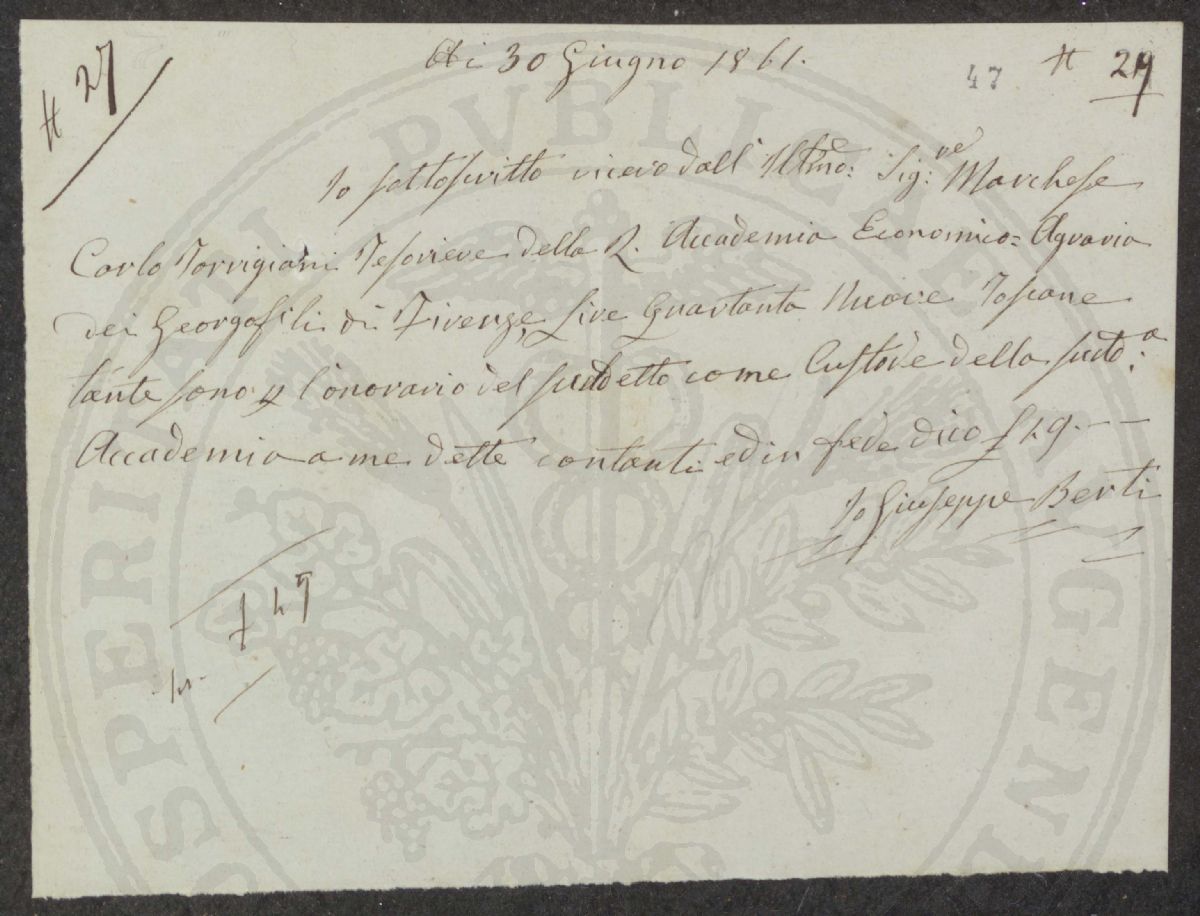 # 27
Ai 30 Giugno 1861.
47
# 29
Io sottoscritto ricevo dall' Illmo: Sig:re Marchese
Carlo Torrigiani Tesoriere della R. Accademia Economico= Agraria
dei Georgofili di Firenze, Lire Quarantanove Toscane
tante sono p l'onorario del suddetto come Custode della sudd:a
Accademia a me dette contanti ed in fede dico £ 49.--
Io Giuseppe Berti
£ 49
PROSPERITATI PUBLICAE AUGENDAE